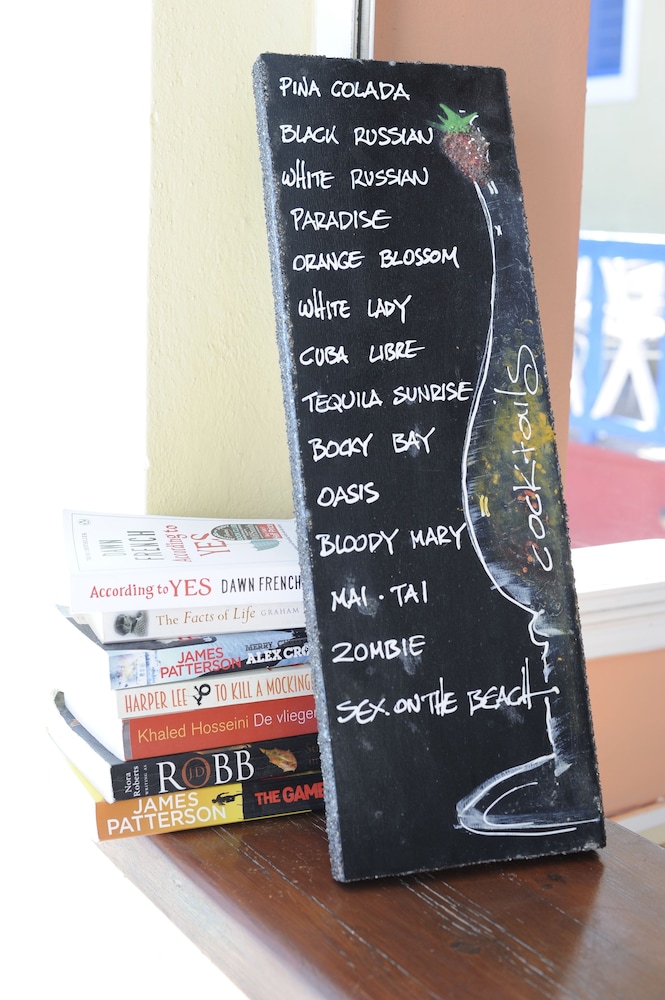 PINA COLADA
BLACK RUSSIAN
WHITE RUSSIAN
PARADISE
ORANGE BLOSSOM
WHITE LADY
CUBA LIBRE
TEQUILA SUNRISE
BOCKY BAY
OASIS
BLOODY MARY
MAI·TAI
ZOMBIE
SEX.ON THE BEACH
cocktails
DAWN
FRENCH
According to
YES
According to YES DAWN FRENCH
The Facts of Life GRAHAM
JAMES
PATTERSON
MERRY
ALEX
HARPER LEE TO KILL A MOCKING
Khaled Hosseini De vlieger
Nora
Roberts
WRITING AS
J.D.
ROBB
JAMES
PATTERSON
THE GAME